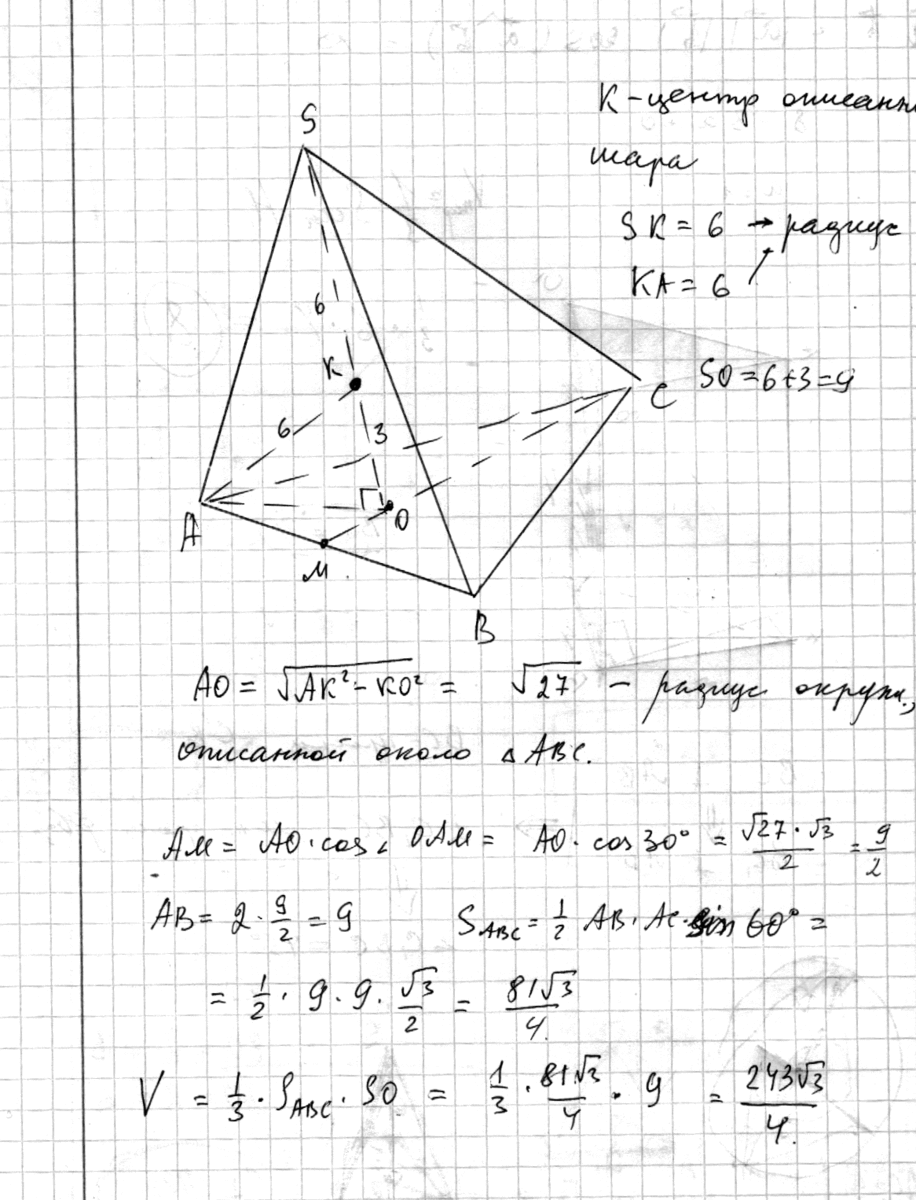 S
K-центр описанн
шара
SK = 6 → радиус
KA = 6
6
K
6
3
C
SO = 6+3 = 9
A
O
M
B
AO = √(AK² - KO²) = √27 - радиус окружн.,
описанной около △ABC.
AM = AO · cos ∠ OAM = AO · cos 30° = (√27 · √3)/2 = 9/2
AB = 2 · 9/2 = 9 S_ABC = 1/2 AB · AC · sin 60° =
= 1/2 · 9 · 9 · √3/2 = 81√3/4.
V = 1/3 · S_ABC · SO = 1/3 · 81√3/4 · 9 = 243√3/4.